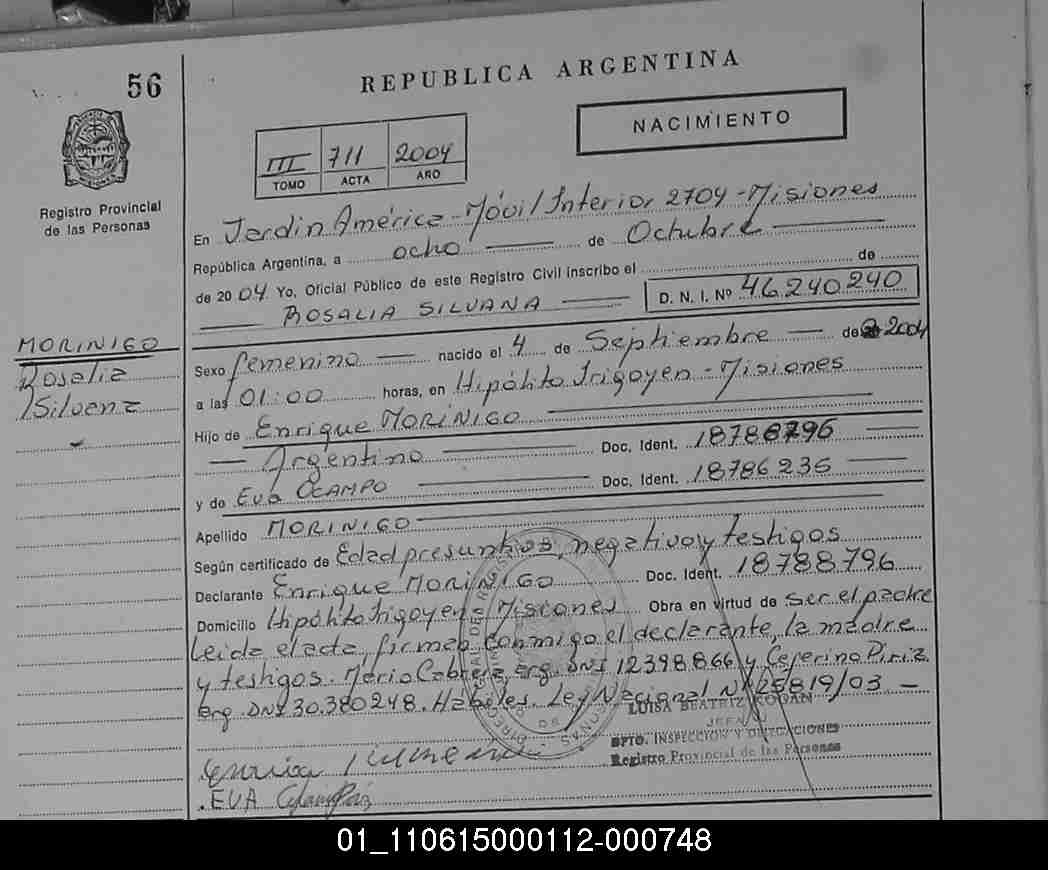 56
REPUBLICA ARGENTINA
NACIMIENTO
III 711 2004
TOMO ACTA AÑO
Registro Provincial
de las Personas
En Jardin América - Móvil Interior 2704 - Misiones
República Argentina, a ocho de Octubre
de 2004 Yo, Oficial Público de este Registro Civil inscribo el de
ROSALIA SILVANA D. N. I. Nº 46240240
MORINIGO
Rosalia
Silvana
Sexo femenino nacido el 4 de Septiembre de 2004
a las 01:00 horas, en Hipólito Irigoyen - Misiones
Hijo de Enrique MORINIGO
Argentino Doc. Ident. 18788796
y de Eva OCAMPO Doc. Ident. 18786235
Apellido MORINIGO
Según certificado de Edad presuntiva, negativo y testigos
Declarante Enrique MORINIGO Doc. Ident. 18788796
Domicilio Hipólito Irigoyen - Misiones Obra en virtud de ser el padre
Leida el acta, firman conmigo el declarante, la madre
y testigos. Mario Cabrera, arg. DNI 12398866 y Ceferino Piriz
arg. DNI 30.380248. Hábiles. Ley Nacional Nº 25819/03 -
LUISA BEATRIZ KOGAN
JEFA
DPTO. INSPECCION Y DELEGACIONES
Registro Provincial de las Personas
EVA
01_110615000112-000748